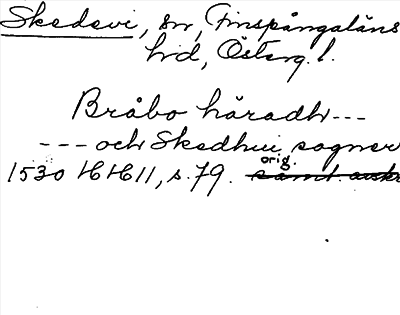 Skedevi, sn, Finspångaläns
hd, Österg. l.
Bråbo häradh ---
--- och Skedhui sogner
orig.
1530 HH 11, s. 79. samt. avskr